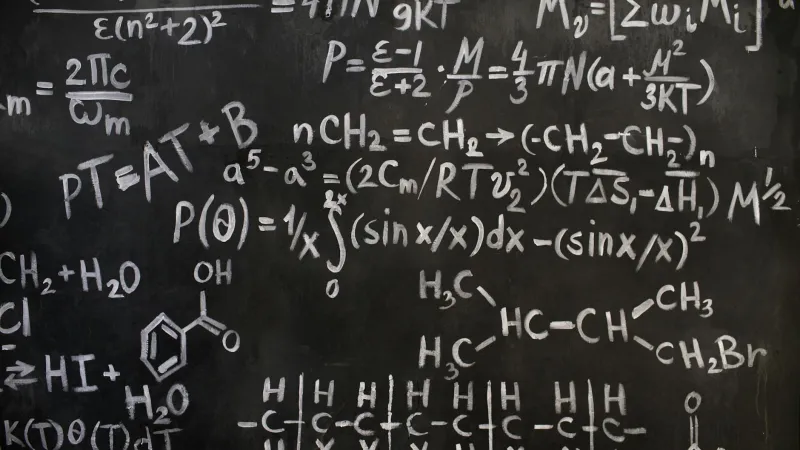 ε(n²+2)²
= 4πN
9KT
M_v = [Σω_i M_i]
P = (ε-1)/(ε+2) · M/ρ = 4/3 πN(a + M²/3KT)
m = 2πc/ω_m
PT = AT + B
nCH₂ = CH₂ → (-CH₂-CH₂-)n
a⁵ - a³ = (2C_m/RTv₂²)(TΔS₁-ΔH₁)M^1/2
P(θ) = 1/x ∫₀^2x (sin x/x)dx - (sin x/x)²
CH₂ + H₂O
OH
O
Cl
H₃C
HC-CH
CH₃
H₃C
CH₂Br
⇌ HI + H₂O
K(T)θ(T)dT
H H H H H H H
-C-C-C-C-C-C-C-C-
O